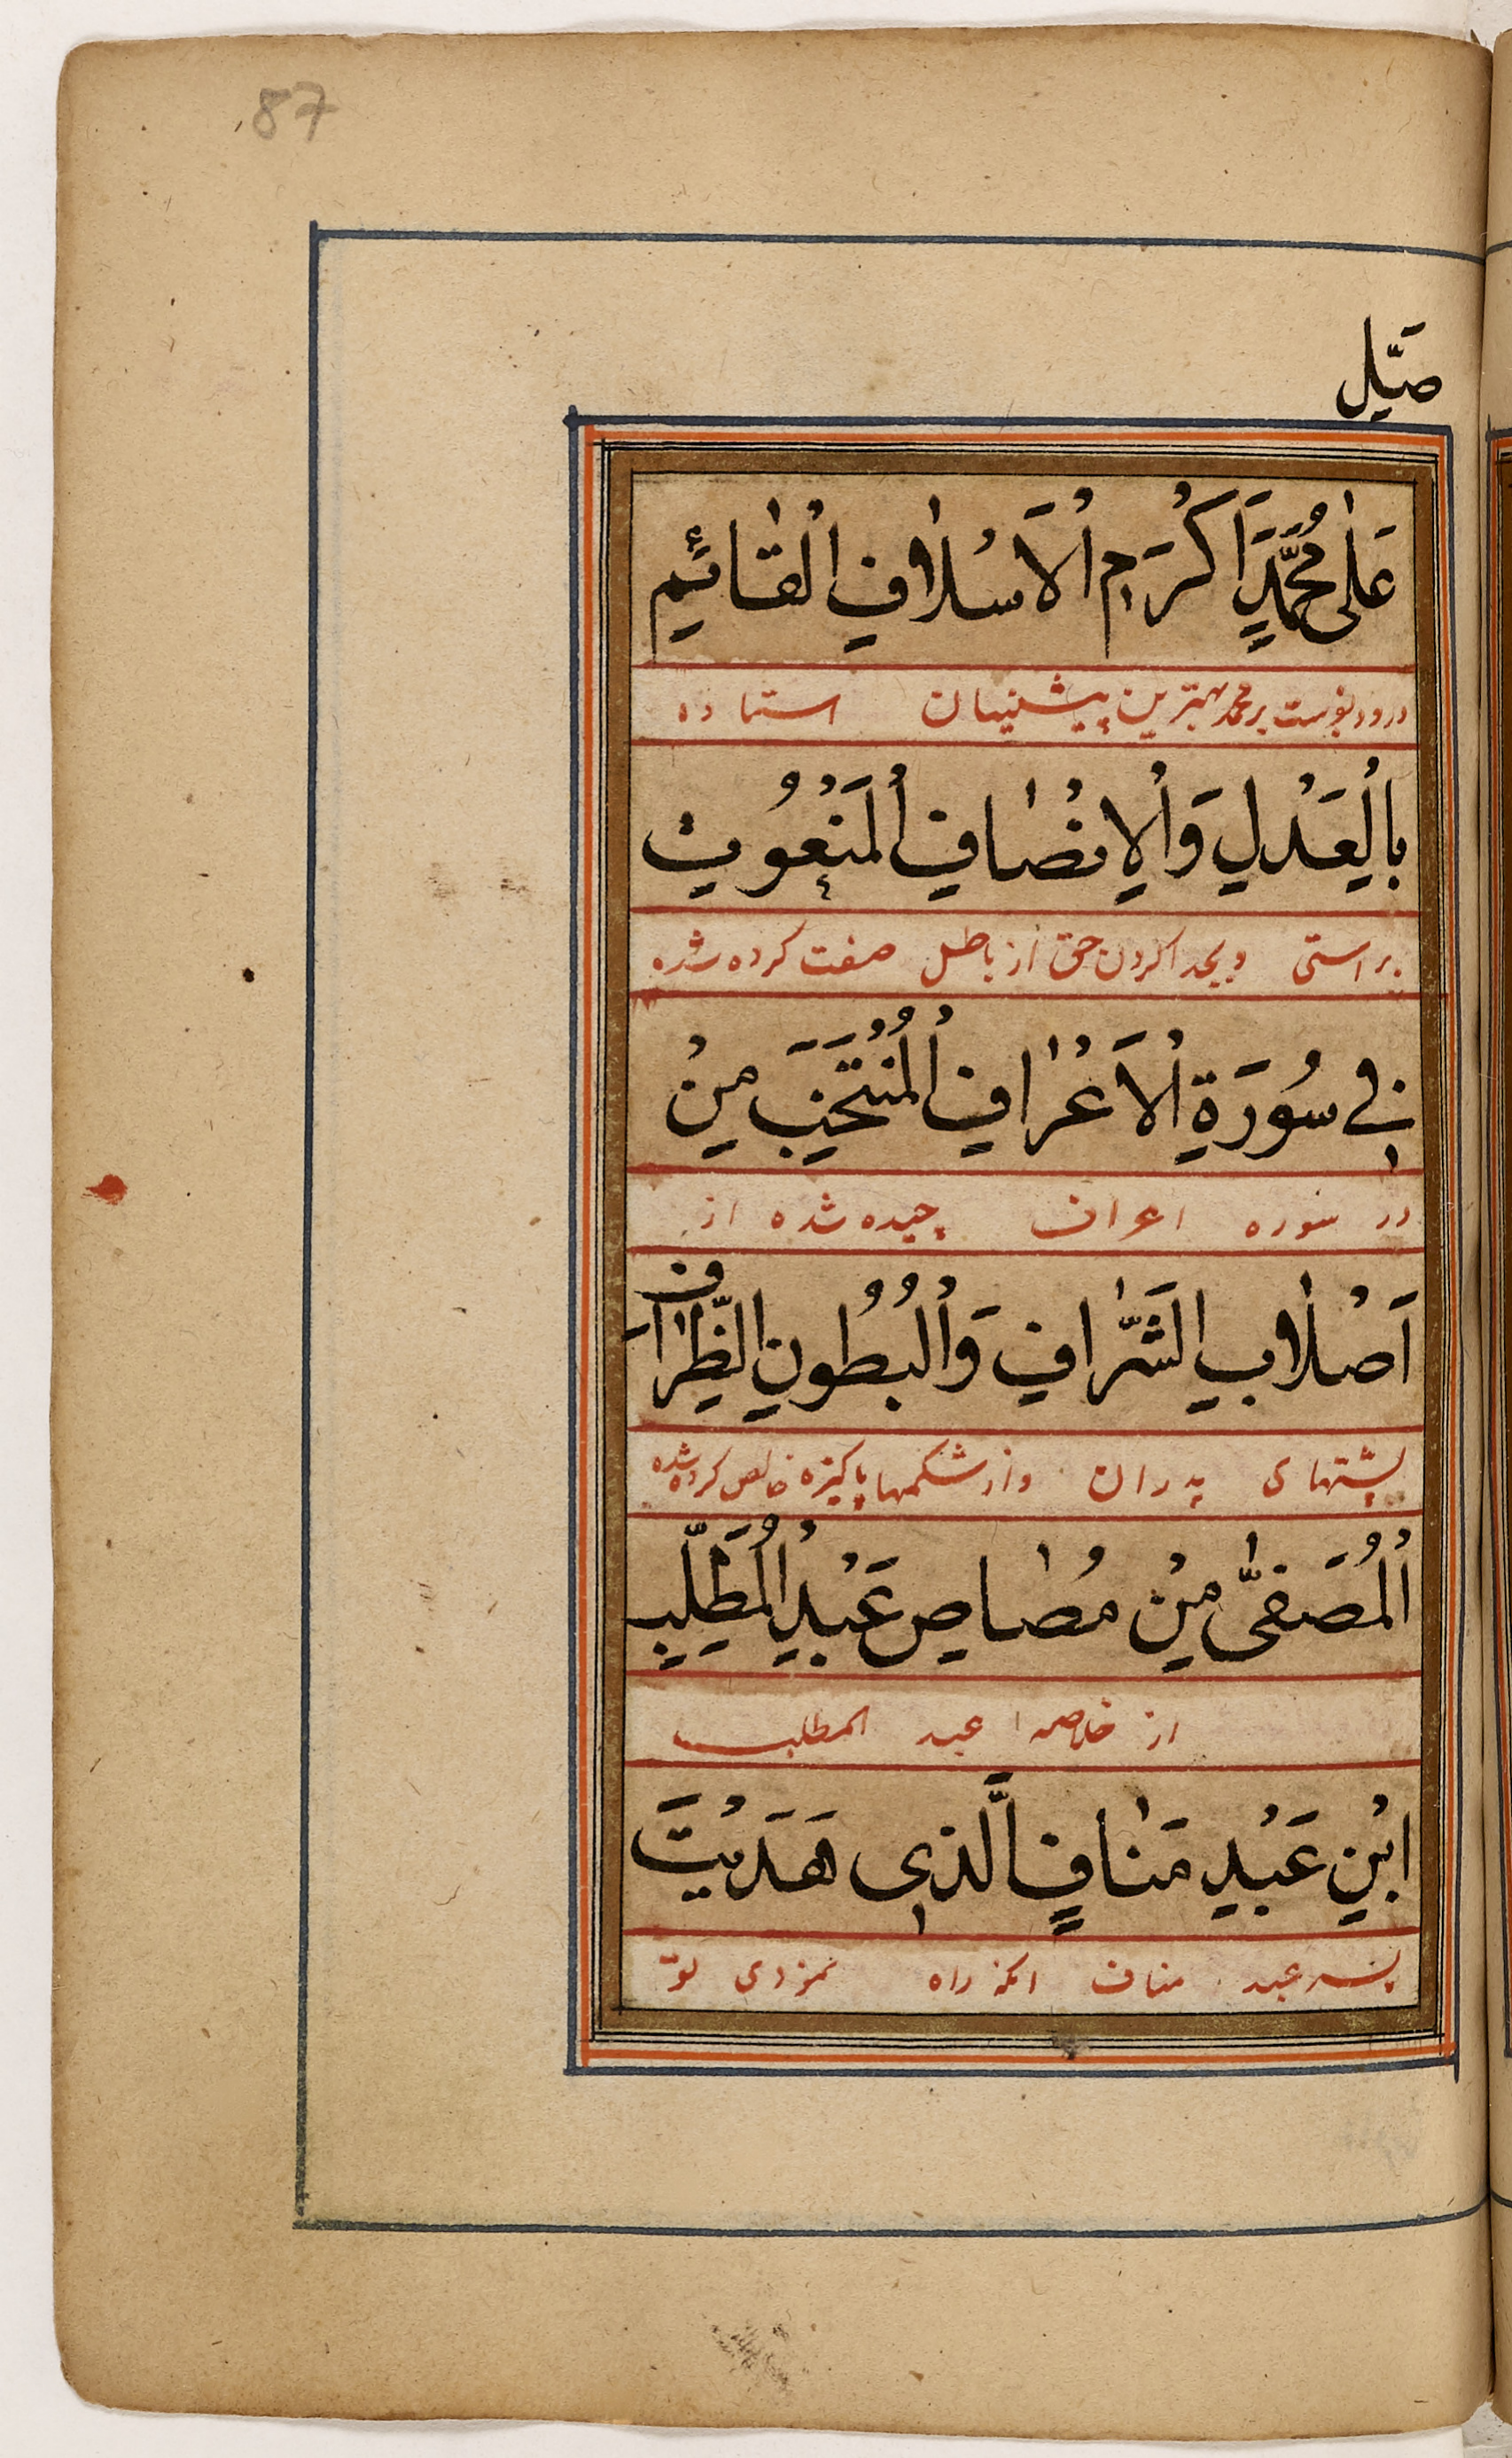 87
صَلِّ
عَلٰى مُحَمَّدٍ اَكْرَمِ الْاَسْلَافِ الْقَائِمِ
درود بفرست بر محمد بهترین پیشینیان استاده
بِالْعَدْلِ وَالْاِنْصَافِ الْمَنْعُوتِ
براستی و بجدا کردن حق از باطل صفت کرده شده
فِي سُورَةِ الْاَعْرَافِ الْمُنْتَخَبِ مِنْ
در سوره اعراف چیده شده از
اَصْلَابِ الشَّرَافِ وَالْبُطُونِ الظِّرَافِ
پشتهای پدران و از شکمها پاکیزه خالص کرده شده
الْمُصَفّٰى مِنْ مُصَاصِ عَبْدِ الْمُطَّلِبِ
از خلاصه عبد المطلب
ابْنِ عَبْدِ مَنَافٍ الَّذِي هَدَيْتَ
پسر عبد مناف آنکه راه نمودی تو